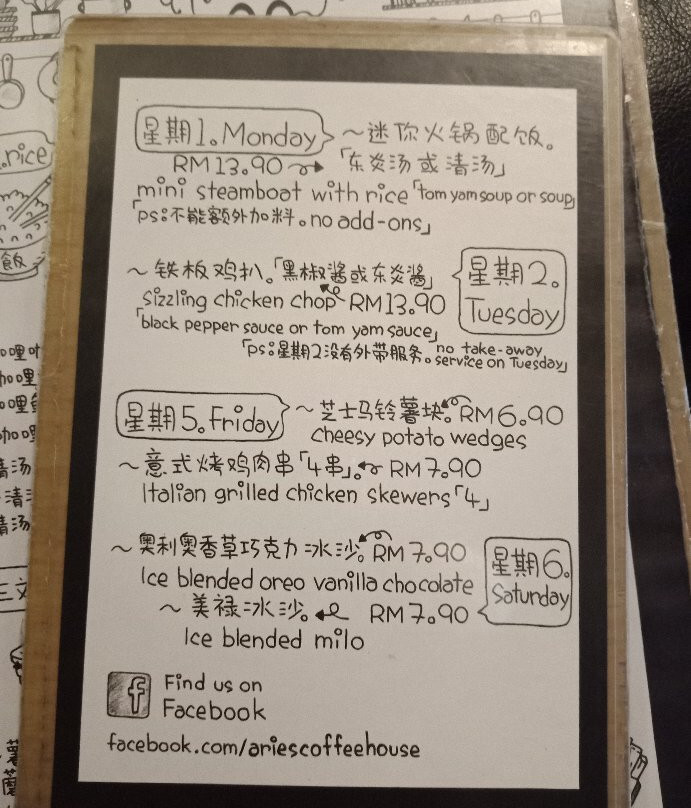 星期1。Monday ～迷你火锅配饭。
RM13.90 「东炎汤或清汤」
mini steamboat with rice「tom yam soup or soup」
「ps:不能额外加料。no add-ons」
～铁板鸡扒。「黑椒酱或东炎酱」
星期2。
sizzling chicken chop RM13.90
Tuesday
「black pepper sauce or tom yam sauce」
「ps:星期2没有外带服务。no take-away
service on Tuesday」
星期5。Friday ～芝士马铃薯块。RM6.90
cheesy potato wedges
～意式烤鸡肉串「4串」。RM7.90
Italian grilled chicken skewers「4」
～奥利奥香草巧克力冰沙。RM7.90
星期6。
Ice blended oreo vanilla chocolate
Saturday
～美禄冰沙。 RM7.90
Ice blended milo
f Find us on
Facebook
facebook.com/ariescoffeehouse
.rice
饭
咖哩
咖哩
咖哩
咖哩
清汤
清
清汤
三文
薯
蘑